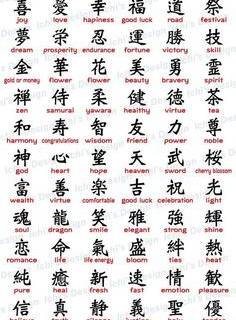 喜 愛 幸 福 道 祭
joy love happiness good luck road festival
夢 栄 忍 運 勝 技
dream prosperity endurance fortune victory skill
金 華 花 美 勇 霊
gold or money flower flower beauty bravery spirit
禅 侍 柔 健 徳 茶
zen samurai yawara healthy virtue tea
和 寿 智 友 力 尊
harmony congratulations wisdom friend power noble
神 心 望 天 武 桜
god heart hope heaven sword cherry blossom
富 善 楽 古 祝 光
wealth virtue comfortable good luck celebration light
魂 龍 笑 雅 強 輝
soul dragon smile elegant strong shine
恋 命 氣 盛 絆 熱
romance life life energy bloom ties heat
純 癒 新 速 情 歓
pure heal fresh fast emotion pleasure
信 真 静 義 聖 優